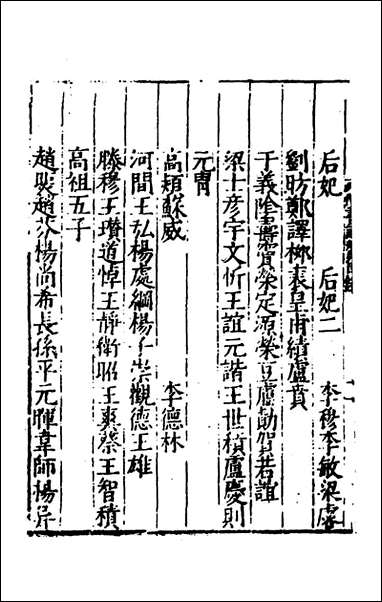 后妃　后妃二　李穆李敏梁睿
劉昉鄭譯柳裘皇甫績盧賁
于義陰壽竇榮定源榮豆盧勣賀若誼
梁士彥宇文忻王誼元諧王世積盧慶則
元冑
高熲蘇威　李德林
河間王弘楊處綱楊子崇觀德王雄
滕穆王瓚道悼王靜衛昭王爽蔡王智積
高祖五子
趙煚趙芬楊尚希長孫平元暉韋師楊异